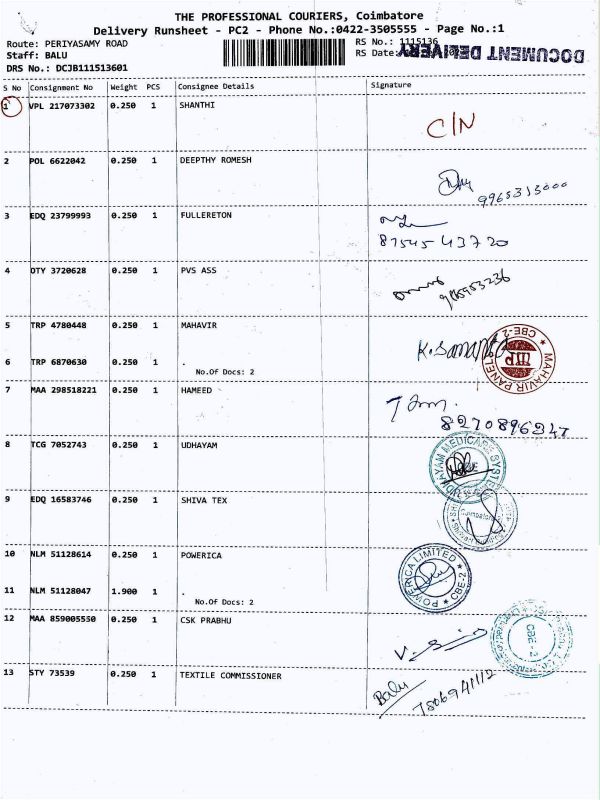 THE PROFESSIONAL COURIERS, Coimbatore
Delivery Runsheet - PC2 - Phone No.:0422-3505555 - Page No.:1
Route: PERIYASAMY ROAD
RS No.: 1115136
Staff: BALU
RS Date:
DOCUMENT DELIVERY
DRS No.: DCJB111513601
S No Consignment No Weight PCS Consignee Details Signature
1 VPL 217073302 0.250 1 SHANTHI
C/N
2 POL 6622042 0.250 1 DEEPTHY ROMESH
9965313000
3 EDQ 23799993 0.250 1 FULLERETON
87545 43720
4 OTY 3720628 0.250 1 PVS ASS
5 TRP 4780448 0.250 1 MAHAVIR
CBE-2
MAHAVIR PANELS
6 TRP 6870630 0.250 1 .
No.Of Docs: 2
7 MAA 298518221 0.250 1 HAMEED
8270896247
8 TCG 7052743 0.250 1 UDHAYAM
UDHAYAM MEDICARE SYSTEMS
9 EDQ 16583746 0.250 1 SHIVA TEX
Coimbatore
10 NLM 51128614 0.250 1 POWERICA
POWERICA LIMITED
CBE-2
11 NLM 51128047 1.900 1 .
No.Of Docs: 2
12 MAA 859005550 0.250 1 CSK PRABHU
CBE - 2
13 STY 73539 0.250 1 TEXTILE COMMISSIONER
Balu